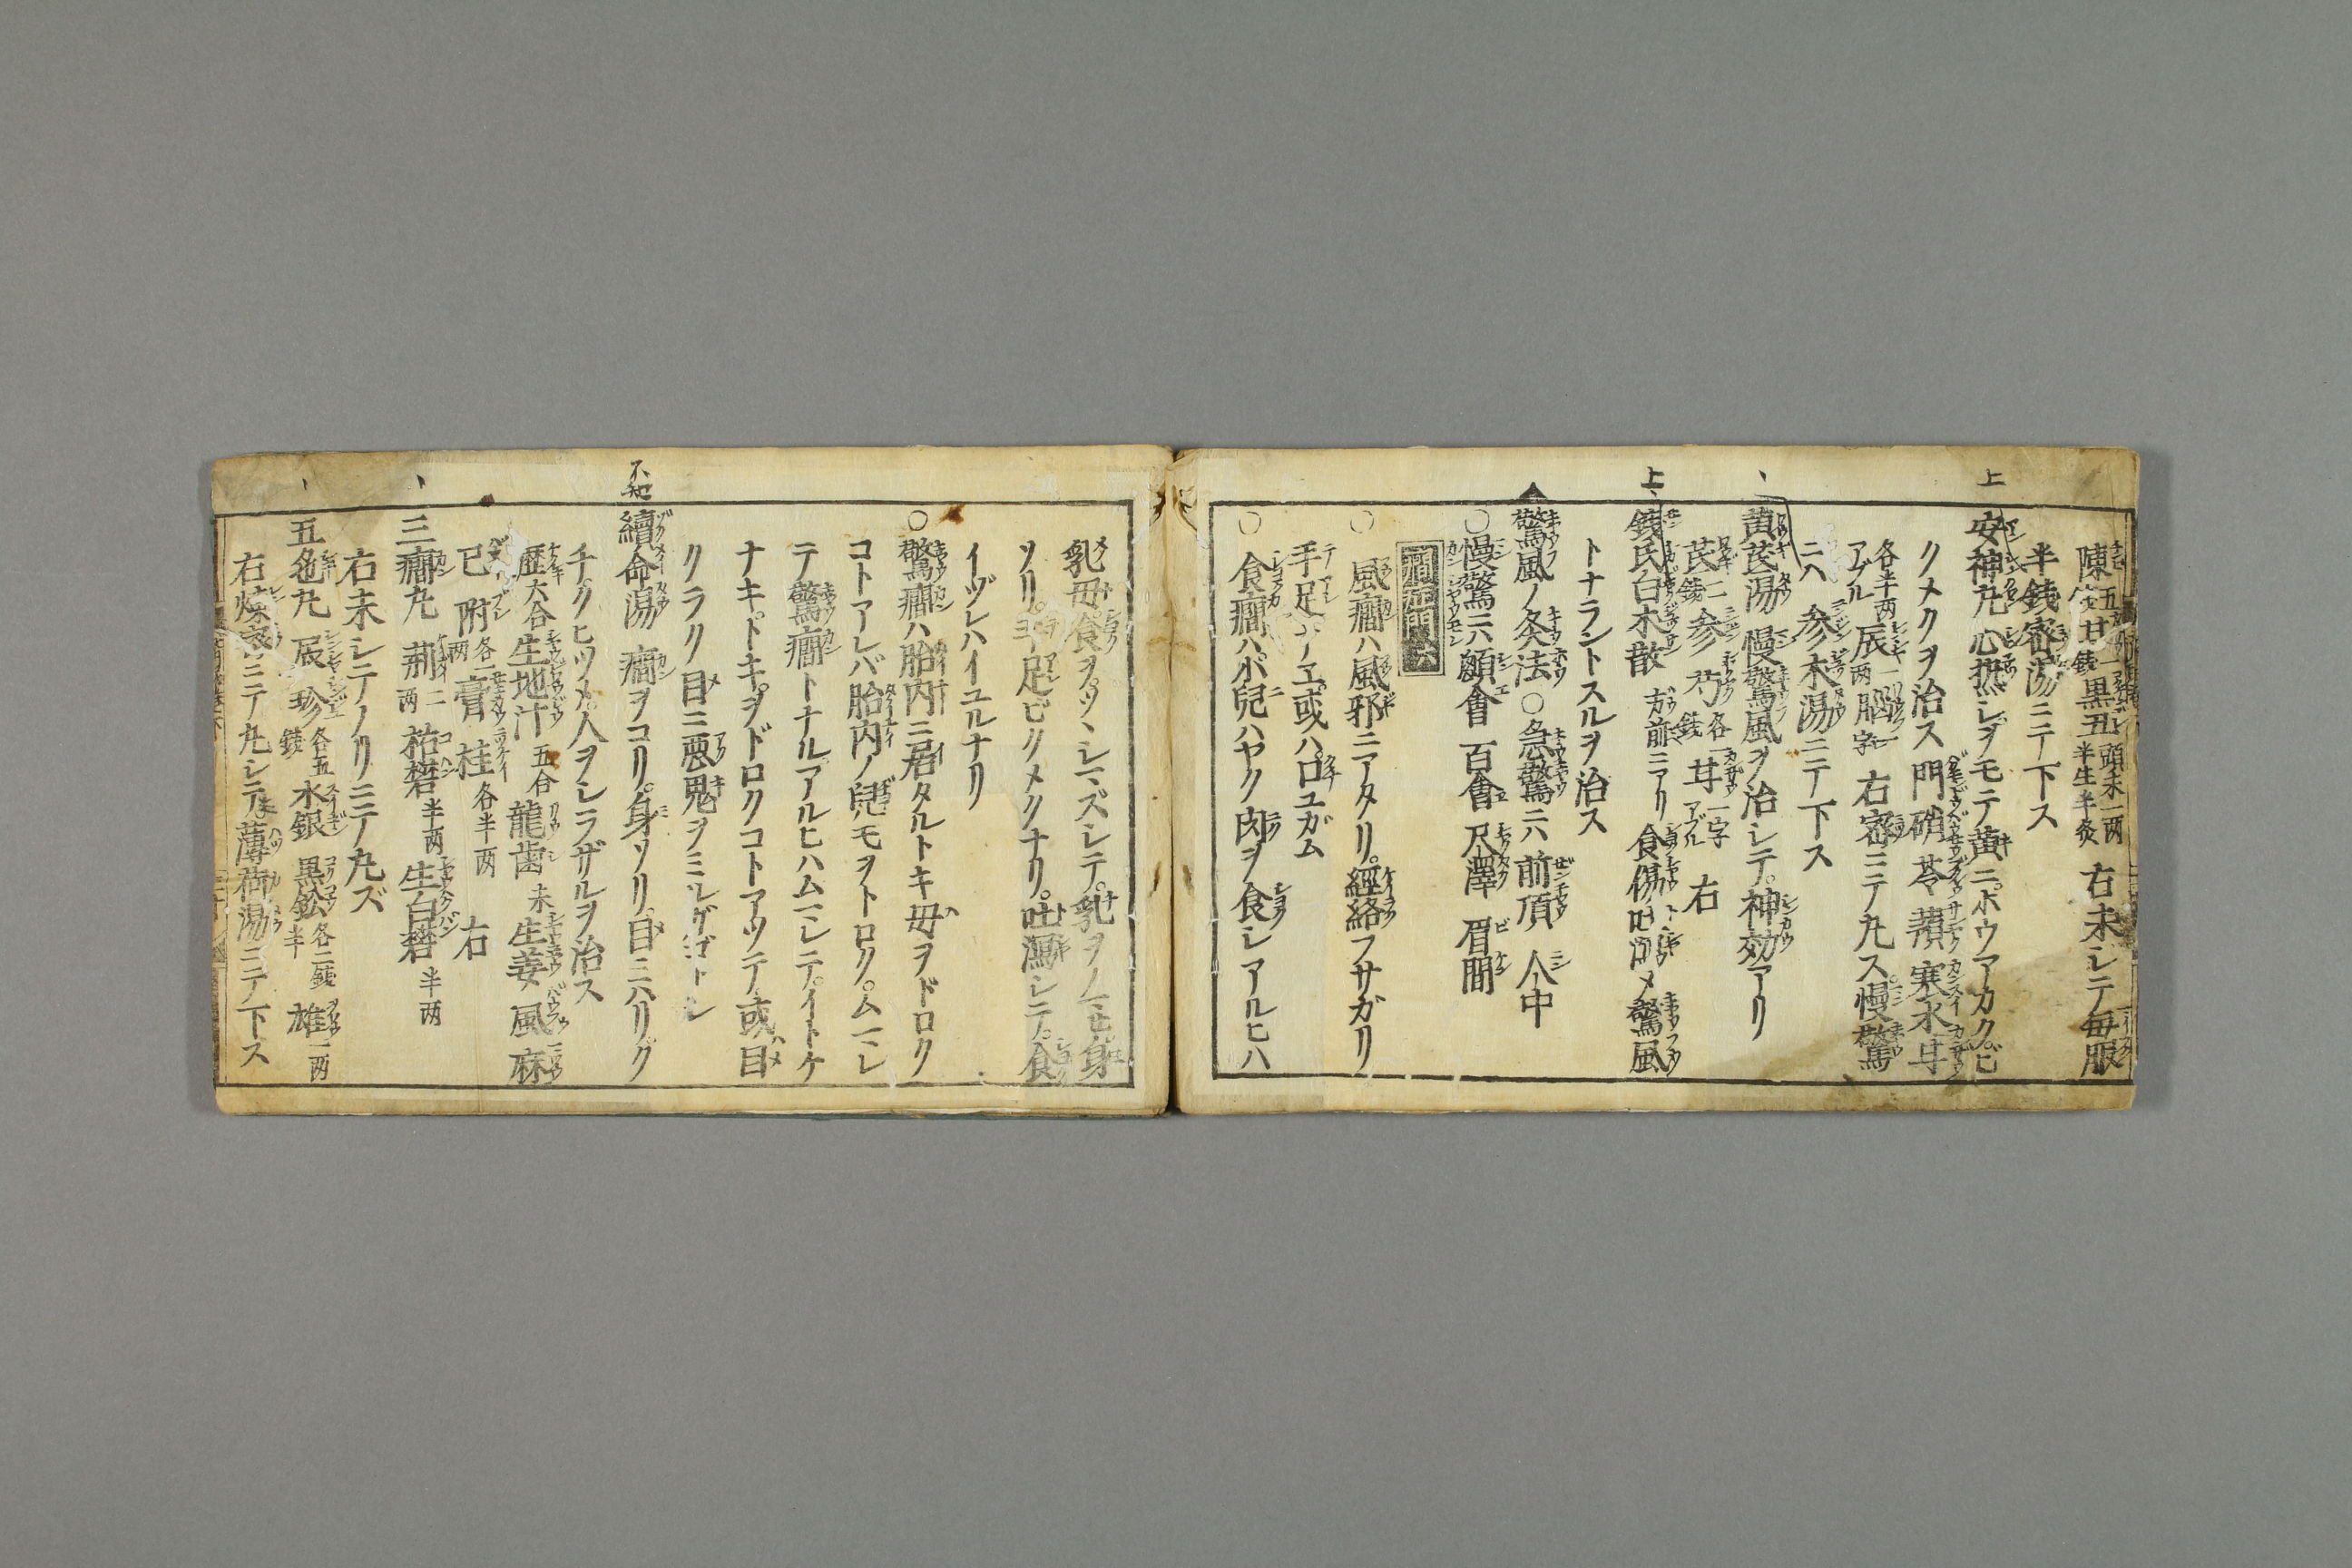 右末シテ毎服
半錢密湯ニテ下ス
上
安神丸 心熱シヲモテ黄ニホウアカクビ
クメクヲ治ス 門 硝 苓 寒水 甘
各半两 アブル 辰 一两 脳 一字 右密ニテ丸ス慢驚
ニハ 参木湯ニテ下ス
黄芪湯 慢驚風ヲ治シテ神効アリ
芪 二錢 参 芍 各一錢 甘 一字アブル 右
上
錢氏白木散 方前ニアリ 食傷吐瀉メ驚風
トナラントスルヲ治ス
驚風ノ灸法 ○急驚ニハ 前頂 人中
○慢驚ニハ 顖會 百會 尺澤 眉間
○風癇ハ風邪ニアタリ經絡フサガリ
手足ナヱ或ハ口ユガム
○食癇ハボ兒ハヤク肉ヲ食シアルヒハ
乳母食ヲツヽシマズシテ乳ヲノマセ身
ソリ手足ビクメクナリ吐瀉シテ食
イヅレハイユルナリ
○驚癇ハ胎内ニ居タルトキ母ヲドロク
コトアレバ胎内ノ兒モヲトロクムマレ
テ驚癇トナルアルヒハムマレテイトケ
ナキトキヲドロクコトアツテ或目
クラク目ニ悪鬼ヲミルゲゴトシ
不知
續命湯 癇ヲコリ身ソリ目ニハリグ
チクヒツメ人ヲシラザルヲ治ス
歴 六合 生地汁 五合 龍歯 末 生姜 風 麻
已 附 各一两 膏 桂 各半两 右
三癇丸 荊 二两 祐礬 半两 生白礬 半两
右末シテノリニテ丸ズ
五色丸 辰 珍 各五錢 水銀 黒鉛 各二錢半 雄 一两
右煉密ニテ丸シテ薄荷湯ニテ下ス